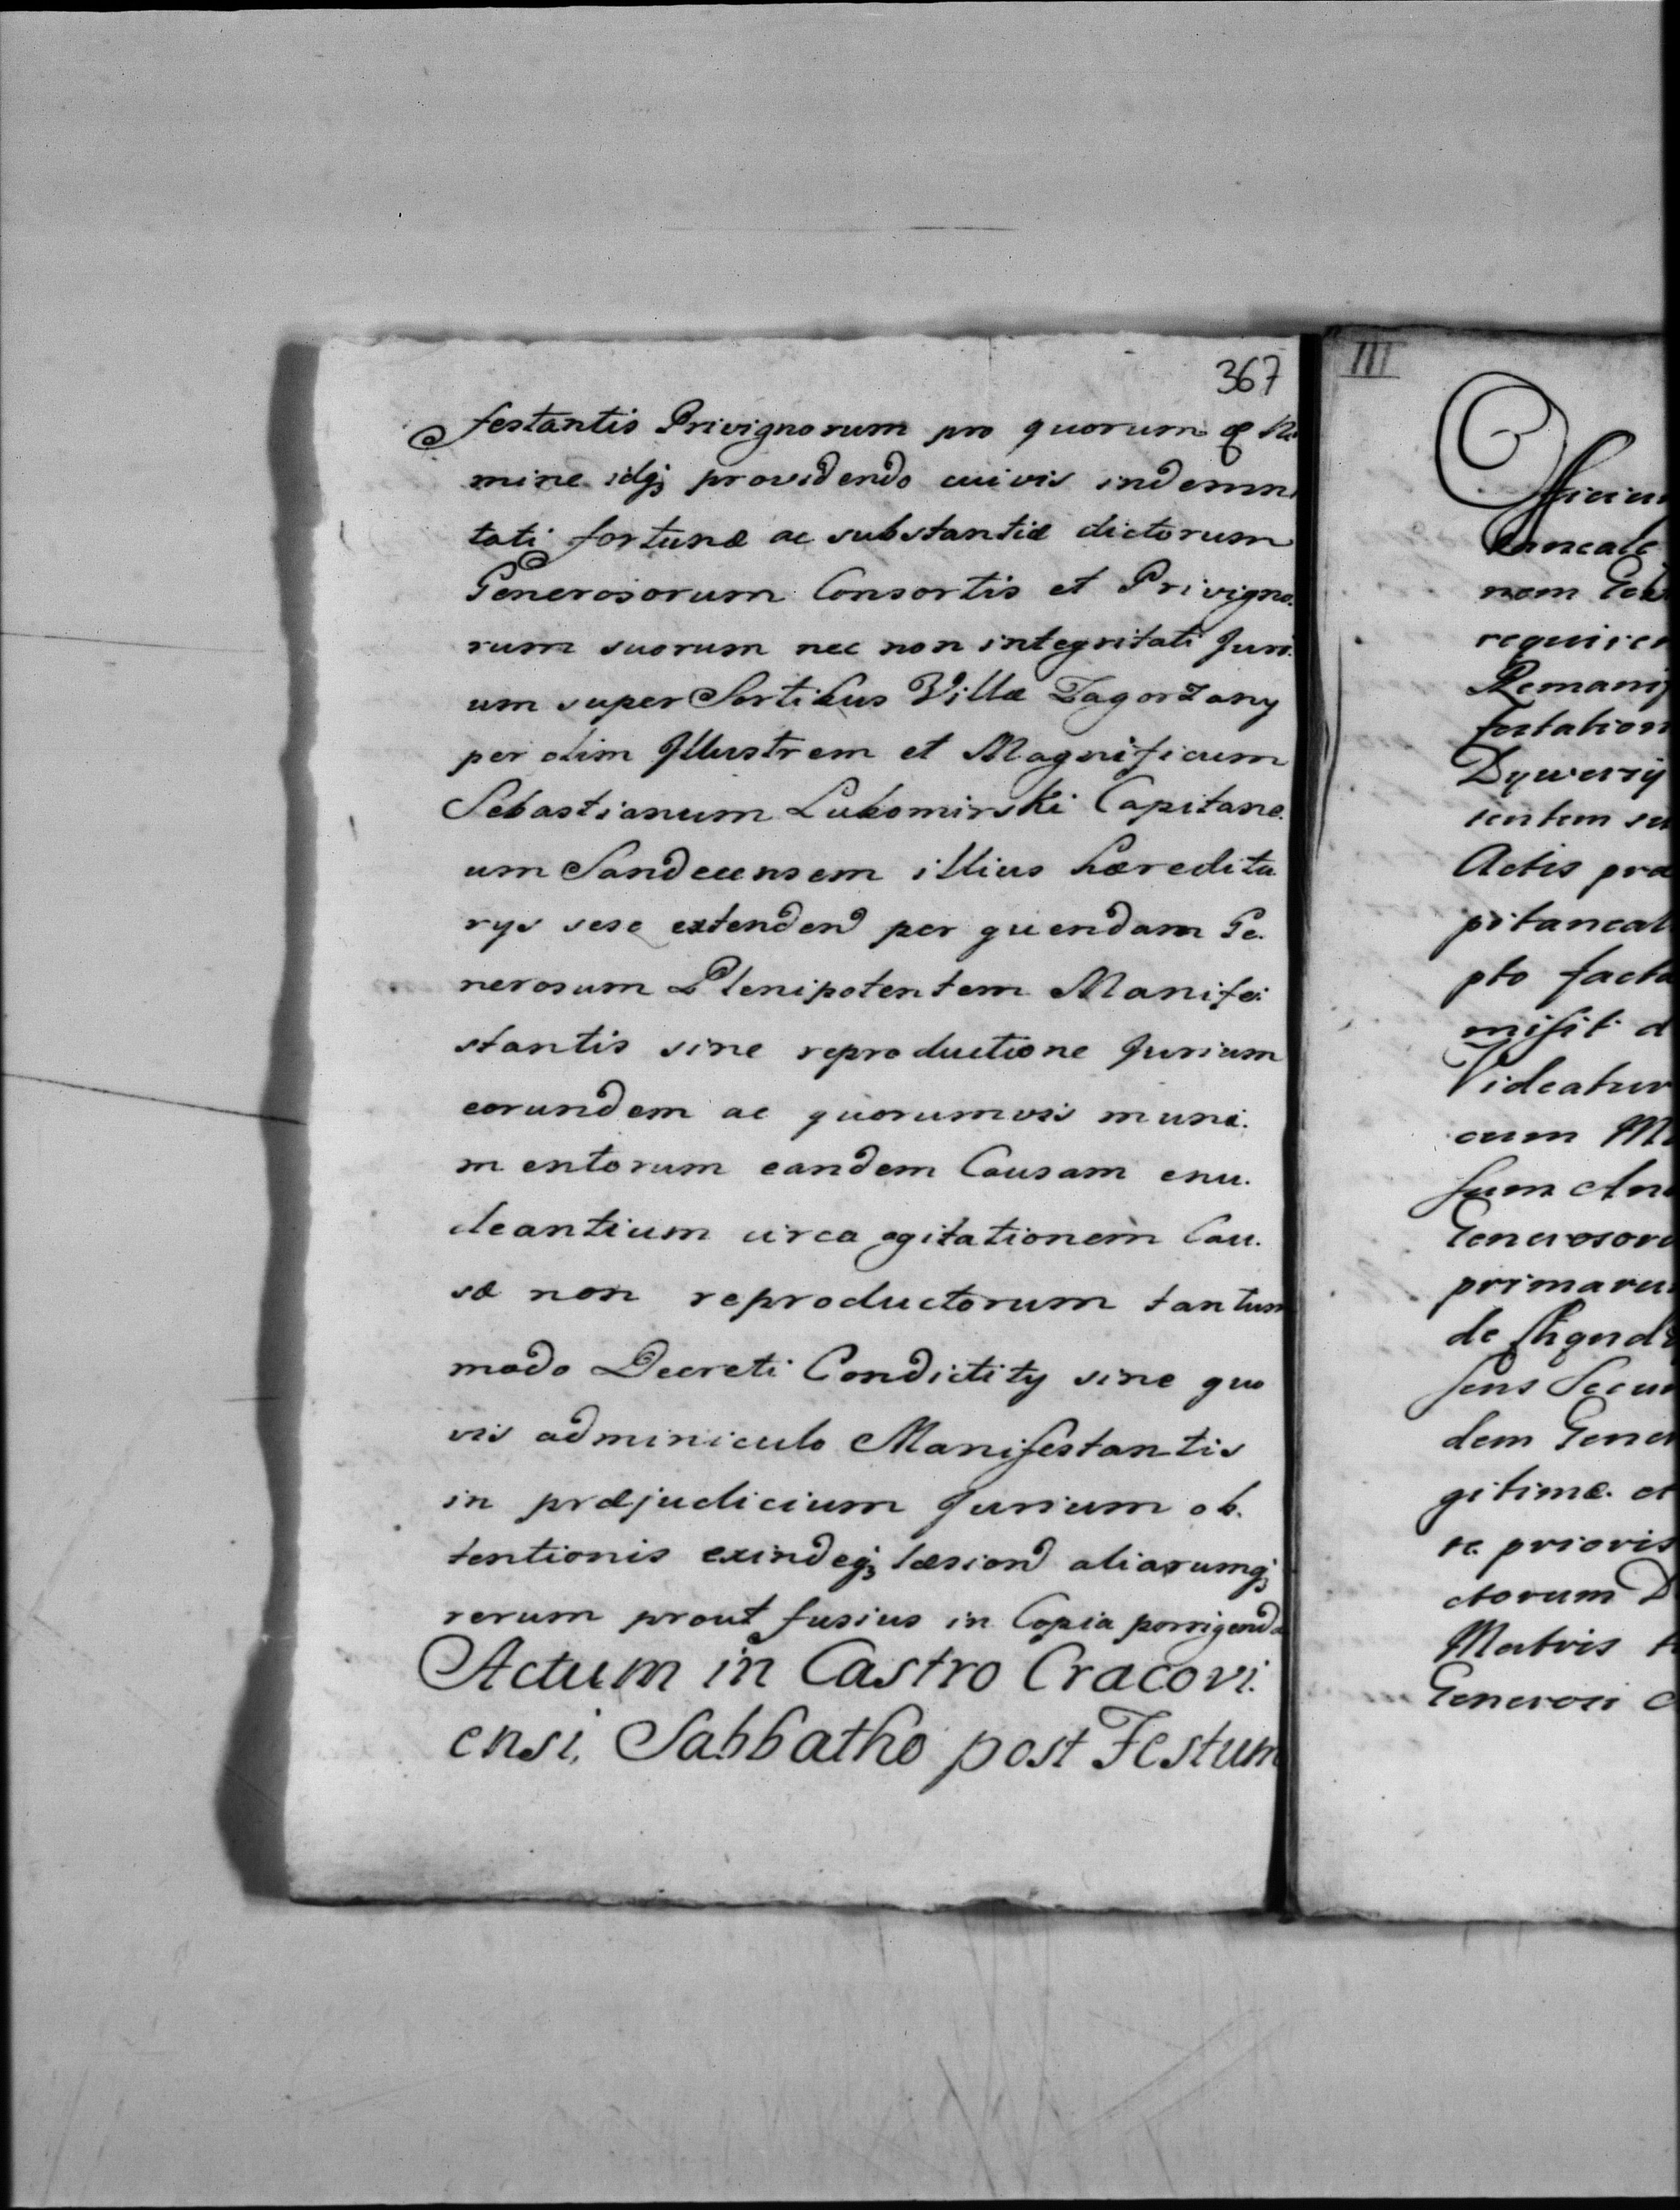 367
festantis Privignorum pro quorum & No
mine idq; providendo cuivis indemni
tati fortunæ ac substantiæ dictorum
Generosorum Consortis et Privigno.
rum suorum nec non integritati Juri.
um super Sortibus Villæ Zagorzany
per olim Illustrem et Magnificum
Sebastianum Lubomirski Capitane.
um Sandecensem illius hæredita
rys sese extendend per quendam Ge.
nerosum Plenipotentem Manife.
stantis sine reproductione Jurium
eorundem ac quorumvis muni.
mentorum eandem Causam enu.
cleantium circa agitationem Cau.
sæ non reproductorum tantum
modo Decreti Condictity sine quo
vis adminiculo Manifestantis
in præjudicium Jurium ob.
tentionis exindeq; læsiond aliarumq;
rerum prout fusius in Copia porrigenda
Actum in Castro Cracovi.
ensi, Sabbatho post Festum
III
Officium
nem
requiren
Remanif
festation
Dywersy
sentem su
Actis præ
pitaneal
pto facta
misit a
Videatur
cum Ma
sum An
Generosoru
primaru
de
sens Secun
dem Gener
gitimæ et
se prioris
ctorum D
Matris
Generosi C